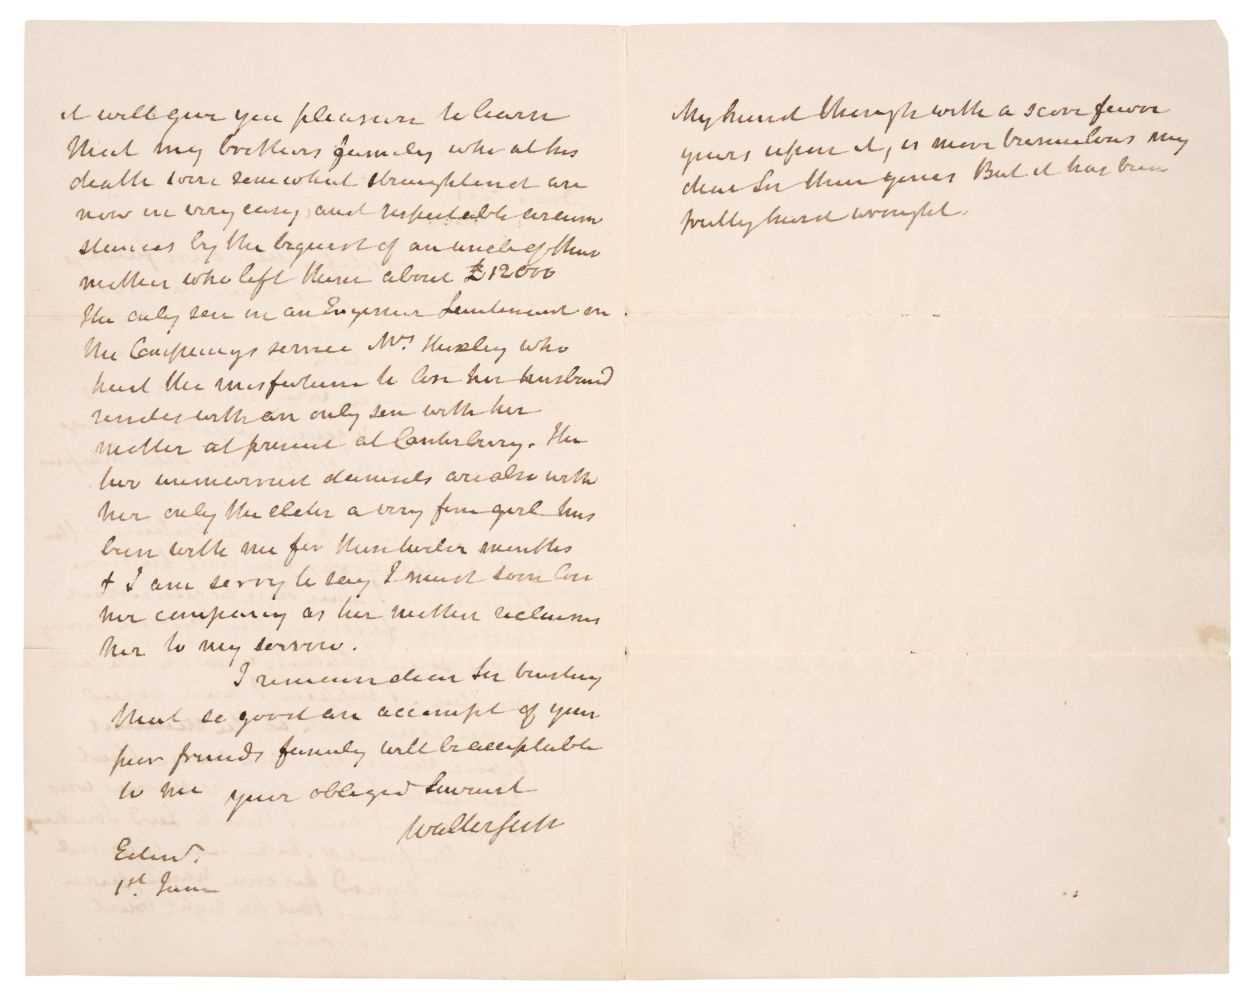 it will give you pleasure to learn
that my brothers family who at his
death were somewhat straightend are
now in very easy and respectable circum
stances by the bequest of an uncle of their
mother who left them about £12000
The only son is an Engineer Lieutenant in
the Companys service Mrs Huxley who
had the misfortune to lose her husband
resides with an only son with her
mother at present at Canterbury. The
two unmarried damsels are also with
her only the elder a very fine girl has
been with me for these twelve months
& I am sorry to say I must soon lose
her company as her mother reclaims
her to my sorrow.
I remain dear Sir trusting
that so good an accompt of your
poor friends family will be acceptable
to me your obliged Servant
Walter Scott
Edinr.
1st June
My hand though with a score fewer
years upon it, is more tremulous my
dear Sir than yours But it has been
hard wrought.